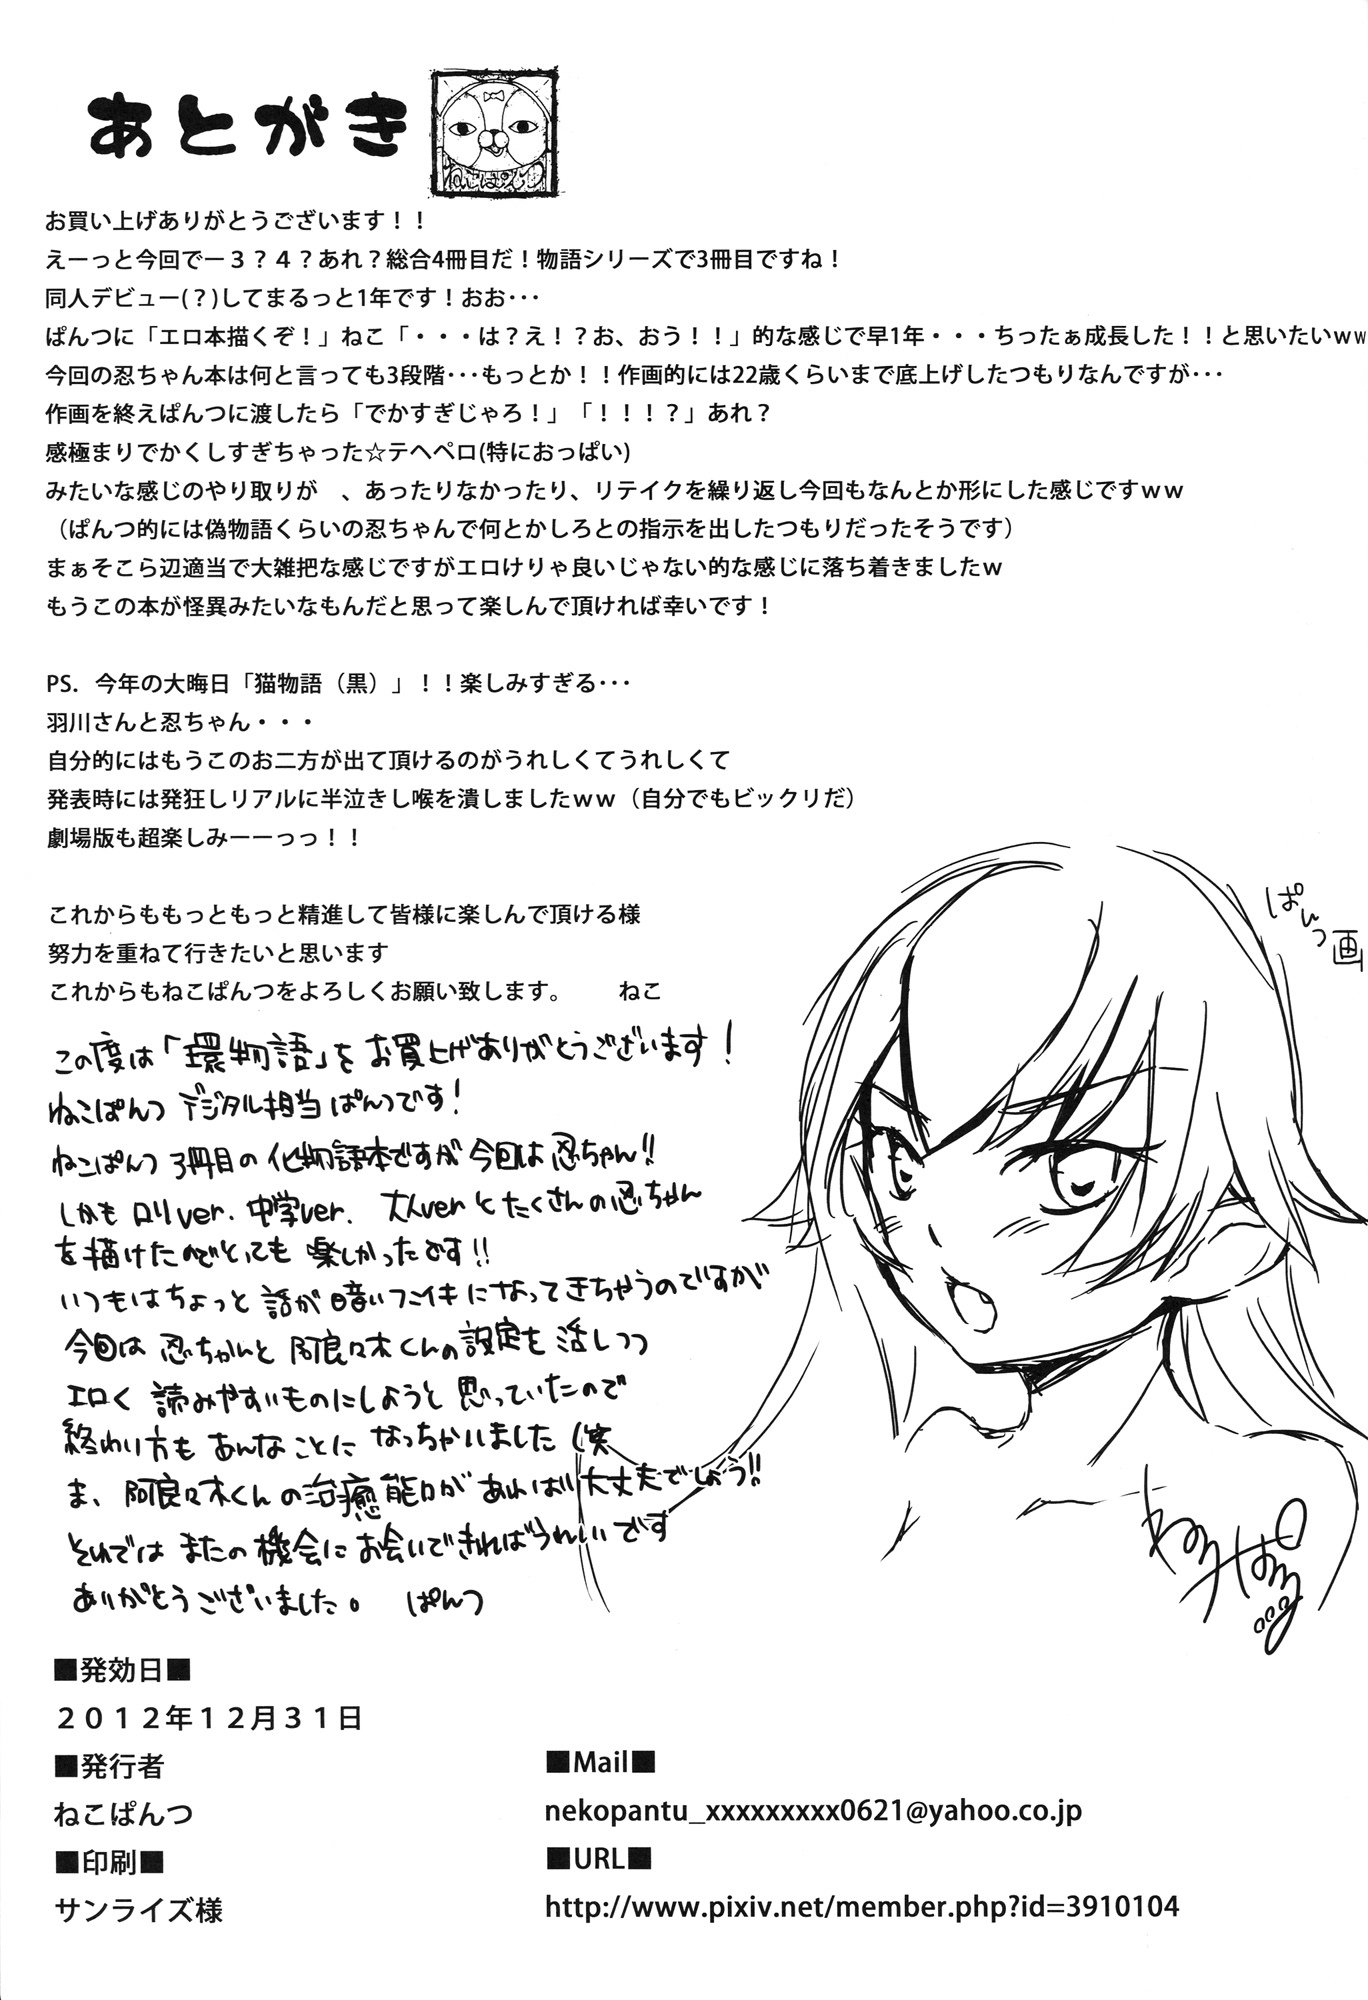 あとがき
ねこぱんつ
お買い上げありがとうございます！！
えーっと今回でー３？４？あれ？総合4冊目だ！物語シリーズで3冊目ですね！
同人デビュー(？)してまるっと1年です！おお･･･
ぱんつに「エロ本描くぞ！」ねこ「・・・は？え！？お、おう！！」的な感じで早1年・・・ちったぁ成長した！！と思いたいｗｗ
今回の忍ちゃん本は何と言っても3段階･･･もっとか！！作画的には22歳くらいまで底上げしたつもりなんですが･･･
作画を終えぱんつに渡したら「でかすぎじゃろ！」「！！！？」あれ？
感極まりでかくしすぎちゃった☆テヘペロ(特におっぱい)
みたいな感じのやり取りが　、あったりなかったり、リテイクを繰り返し今回もなんとか形にした感じですｗｗ
（ぱんつ的には偽物語くらいの忍ちゃんで何とかしろとの指示を出したつもりだったそうです）
まぁそこら辺適当で大雑把な感じですがエロけりゃ良いじゃない的な感じに落ち着きましたｗ
もうこの本が怪異みたいなもんだと思って楽しんで頂ければ幸いです！
PS．今年の大晦日「猫物語（黒）」！！楽しみすぎる･･･
羽川さんと忍ちゃん・・・
自分的にはもうこのお二方が出て頂けるのがうれしくてうれしくて
発表時には発狂しリアルに半泣きし喉を潰しましたｗｗ（自分でもビックリだ）
劇場版も超楽しみーーっっ！！
これからももっともっと精進して皆様に楽しんで頂ける様
努力を重ねて行きたいと思います
これからもねこぱんつをよろしくお願い致します。　　ねこ
ぱんつ画
この度は「環物語」をお買上げありがとうございます！
ねこぱんつ デジタル担当 ぱんつです！
ねこぱんつ 3冊目の 化物語本ですが 今回は 忍ちゃん!!
しかも ロリver. 中学ver. 大人ver と たくさんの忍ちゃん
を描けたのでとても 楽しかったです!!
いつもはちょっと 話が 暗いフンイキになってきちゃうのですが
今回は 忍ちゃんと 阿良々木くんの設定を 活しつつ
エロく 読みやすいものにしようと 思っていたので
終わり方も あんなことに なっちゃいました (笑
ま、阿良々木くんの治癒能力があれば大丈夫でしょう!!
それでは またの 機会に お会いできればうれしいです
ありがとうございました。　ぱんつ
ねこぱんつ
■発効日■
２０１２年１２月３１日
■発行者
ねこぱんつ
■印刷■
サンライズ様
■Mail■
nekopantu_xxxxxxxxx0621@yahoo.co.jp
■URL■
http://www.pixiv.net/member.php?id=3910104